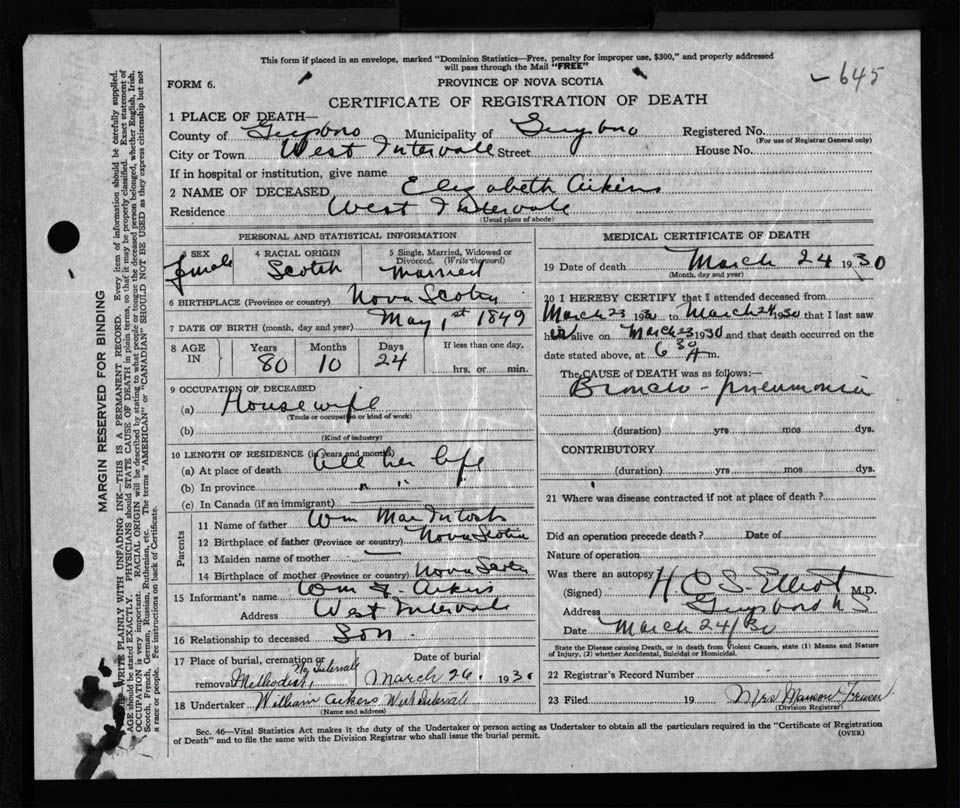 This form if placed in an envelope, marked "Dominion Statistics—Free, penalty for improper use, $300," and properly addressed
will pass through the Mail "FREE"
645
FORM 6.
PROVINCE OF NOVA SCOTIA
CERTIFICATE OF REGISTRATION OF DEATH
1 PLACE OF DEATH—
County of Guysboro Municipality of Guysboro Registered No.
(For use of Registrar General only)
City or Town West Intervale Street House No.
If in hospital or institution, give name
2 NAME OF DECEASED Elizabeth Aikins
Residence West Intervale
(Usual place of abode)
PERSONAL AND STATISTICAL INFORMATION
3 SEX
female
4 RACIAL ORIGIN
Scotch
5 Single, Married, Widowed or
Divorced. (Write the word)
Married
6 BIRTHPLACE (Province or country) Nova Scotia
7 DATE OF BIRTH (month, day and year) May 1st 1849
8 AGE IN
Years Months Days If less than one day,
80 10 24 hrs. or min.
9 OCCUPATION OF DECEASED
(a) Housewife
(Trade or occupation or kind of work)
(b)
(Kind of industry)
10 LENGTH OF RESIDENCE (in years and months)
(a) At place of death All her life
(b) In province " "
(c) In Canada (if an immigrant)
Parents
11 Name of father Wm MacIntosh
12 Birthplace of father (Province or country) Nova Scotia
13 Maiden name of mother —
14 Birthplace of mother (Province or country) Nova Scotia
15 Informant's name Wm F Aikins
Address West Intervale
16 Relationship to deceased Son
17 Place of burial, cremation or
removal Methodist, Intervale
Date of burial
March 26, 1930
18 Undertaker William Aikens West Intervale
(Name and address)
MEDICAL CERTIFICATE OF DEATH
19 Date of death March 24 1930
(Month, day and year)
20 I HEREBY CERTIFY that I attended deceased from
March 23 1930 to March 24 1930 that I last saw
her alive on March 23 1930 and that death occurred on
date stated above, at 6 30 A m.
The CAUSE OF DEATH was as follows:—
Broncho-pneumonia
(duration) yrs mos dys.
CONTRIBUTORY
(duration) yrs. mos. dys.
21 Where was disease contracted if not at place of death?
Did an operation precede death? Date of
Nature of operation
Was there an autopsy
(Signed) H C S Elliot M.D.
Address Guysboro N S
Date March 24/30
State the Disease causing Death, or in death from Violent Causes, state (1) Means and Nature
of Injury, (2) whether Accidental, Suicidal or Homicidal.
22 Registrar's Record Number
23 Filed 19 Mrs
(Division Registrar)
Sec. 46—Vital Statistics Act makes it the duty of the Undertaker or person acting as Undertaker to obtain all the particulars required in the "Certificate of Registration
of Death" and to file the same with the Division Registrar who shall issue the burial permit.
(OVER)
MARGIN RESERVED FOR BINDING
WRITE PLAINLY WITH UNFADING INK—THIS IS A PERMANENT RECORD. Every item of information should be carefully supplied.
AGE should be stated EXACTLY. PHYSICIANS should STATE CAUSE OF DEATH in plain terms, so that it may be properly classified. Exact statement of
OCCUPATION is very important. RACIAL ORIGIN will be described by stating to what people or tongue the deceased person belonged, whether English, Irish,
Scotch, French, German, Russian, Ruthenian, etc. The terms "AMERICAN" or "CANADIAN" SHOULD NOT BE USED as they express citizenship but not
a race or people. See instructions on back of Certificate.